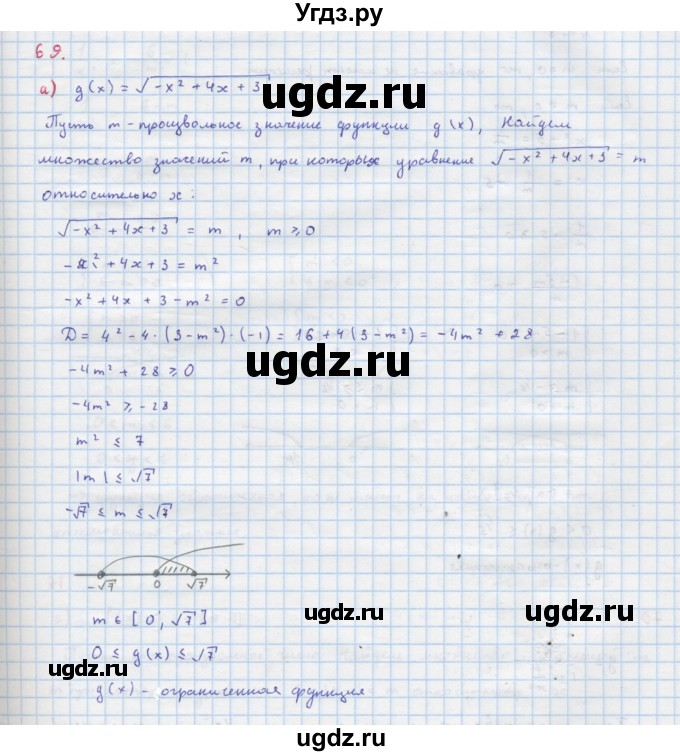 Угдз.ру
69.
а) g(x) = √(-x² + 4x + 3)
ugdz.ru
Пусть m - произвольное значение функции g(x), Найдем
множество значений m, при которых уравнение √(-x² + 4x + 3) = m
ugdz.ru
относительно x:
√(-x² + 4x + 3) = m , m ≥ 0
ugdz.ru
-x² + 4x + 3 = m²
-x² + 4x + 3 - m² = 0
D = 4² - 4 · (3 - m²) · (-1) = 16 + 4(3 - m²) = -4m² + 28
ugdz.ru
-4m² + 28 ≥ 0
-4m² ≥ -28
m² ≤ 7
|m| ≤ √7
ugdz.ru
-√7 ≤ m ≤ √7
-√7 0 √7
m ∈ [0; √7]
ugdz.ru ugdz.ru
0 ≤ g(x) ≤ √7
ugdz.ru
g(x) - ограниченная функция
ugdz.ru